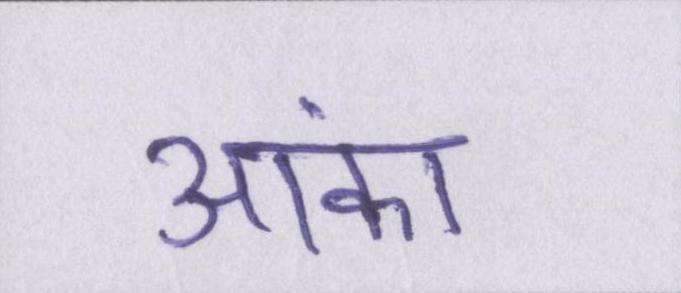 आंका